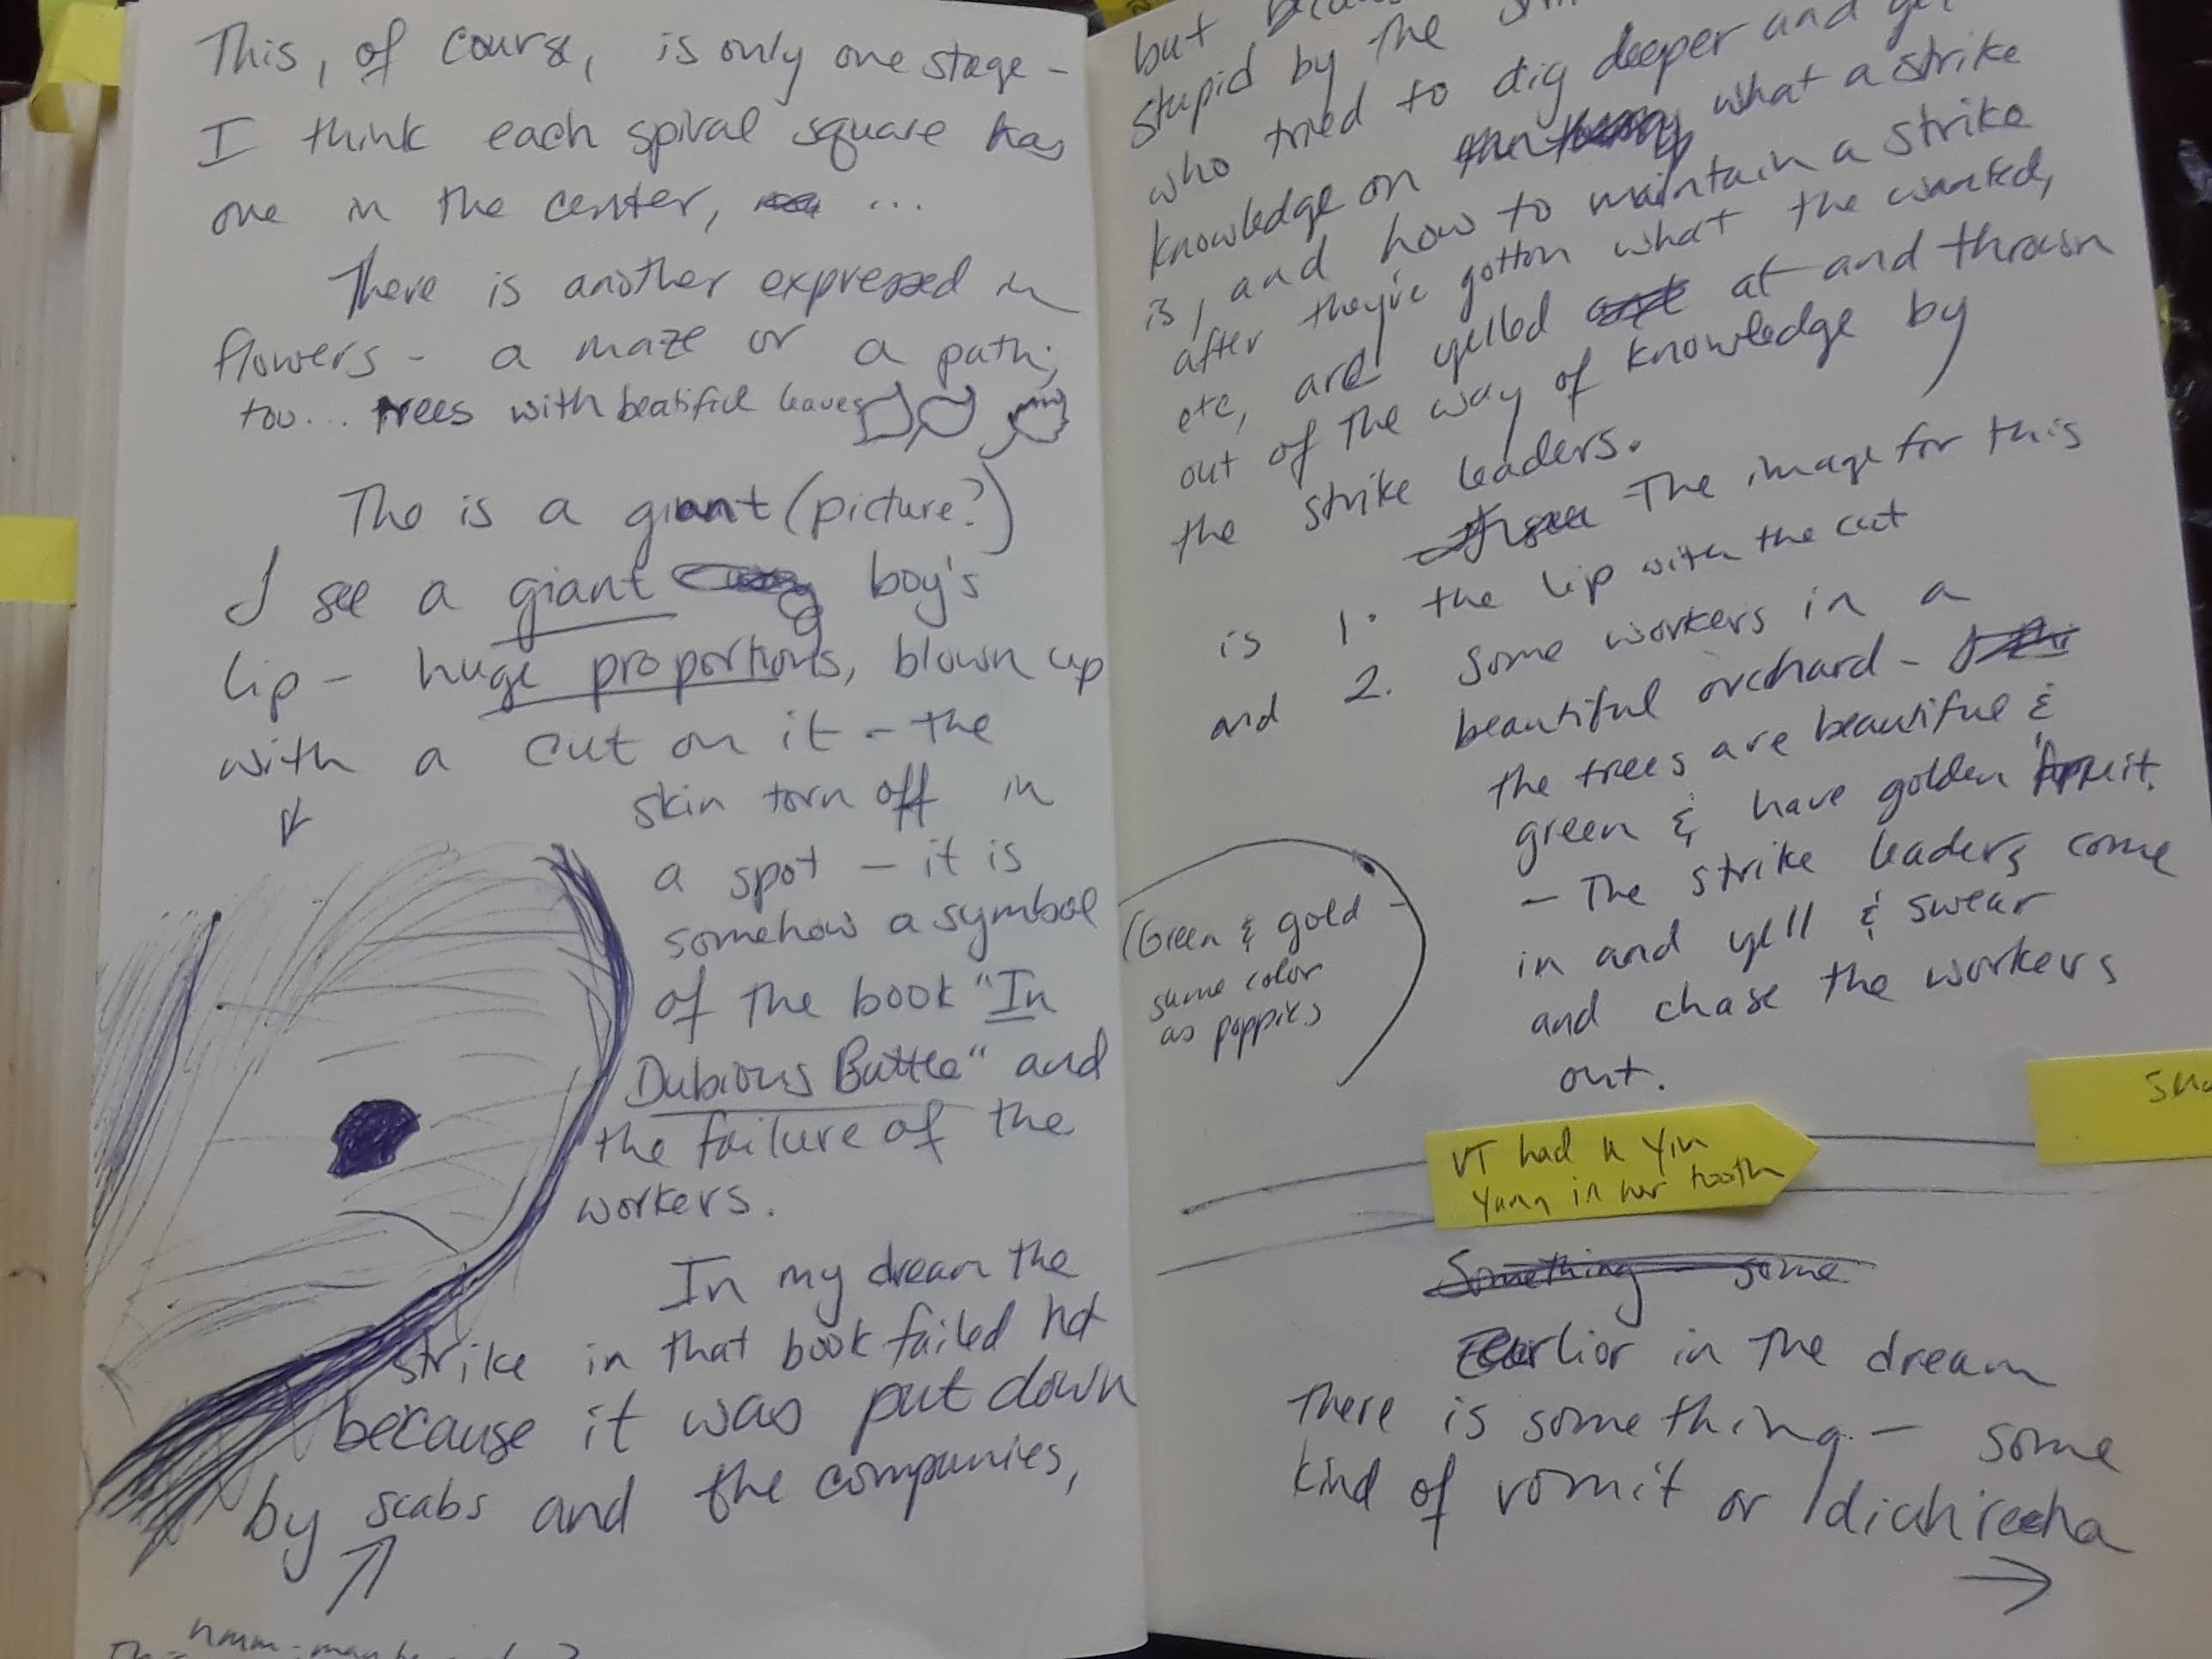 This, of course, is only one stage -
I think each spiral square has
one in the center, ...
There is another expressed in
flowers - a maze or a path;
too... trees with beatiful leaves
The is a giant (picture?)
I see a giant boy's
lip - huge proportions, blown up
with a cut on it - the
skin torn off in
a spot - it is
somehow a symbol
of the book "In
Dubious Battle" and
the failure of the
workers.
In my dream the
strike in that book failed not
because it was put down
by scabs and the companies,
hmm - maybe
but
stupid by the
who tried to dig deeper and get
knowledge on what a strike
is, and how to maintain a strike
after they've gotton what the wanted,
etc, are yelled at and thrown
out of the way of knowledge by
the strike leaders.
The image for this
is 1. the lip with the cut
and 2. Some workers in a
beautiful orchard -
the trees are beautiful &
green & have golden fruit.
- The strike leaders come
in and yell & swear
and chase the workers
out.
(Green & gold -
same color
as poppies)
VT had a Yin
Yang in her tooth
Something - some
Earlior in the dream
there is something - some
kind of vomit or